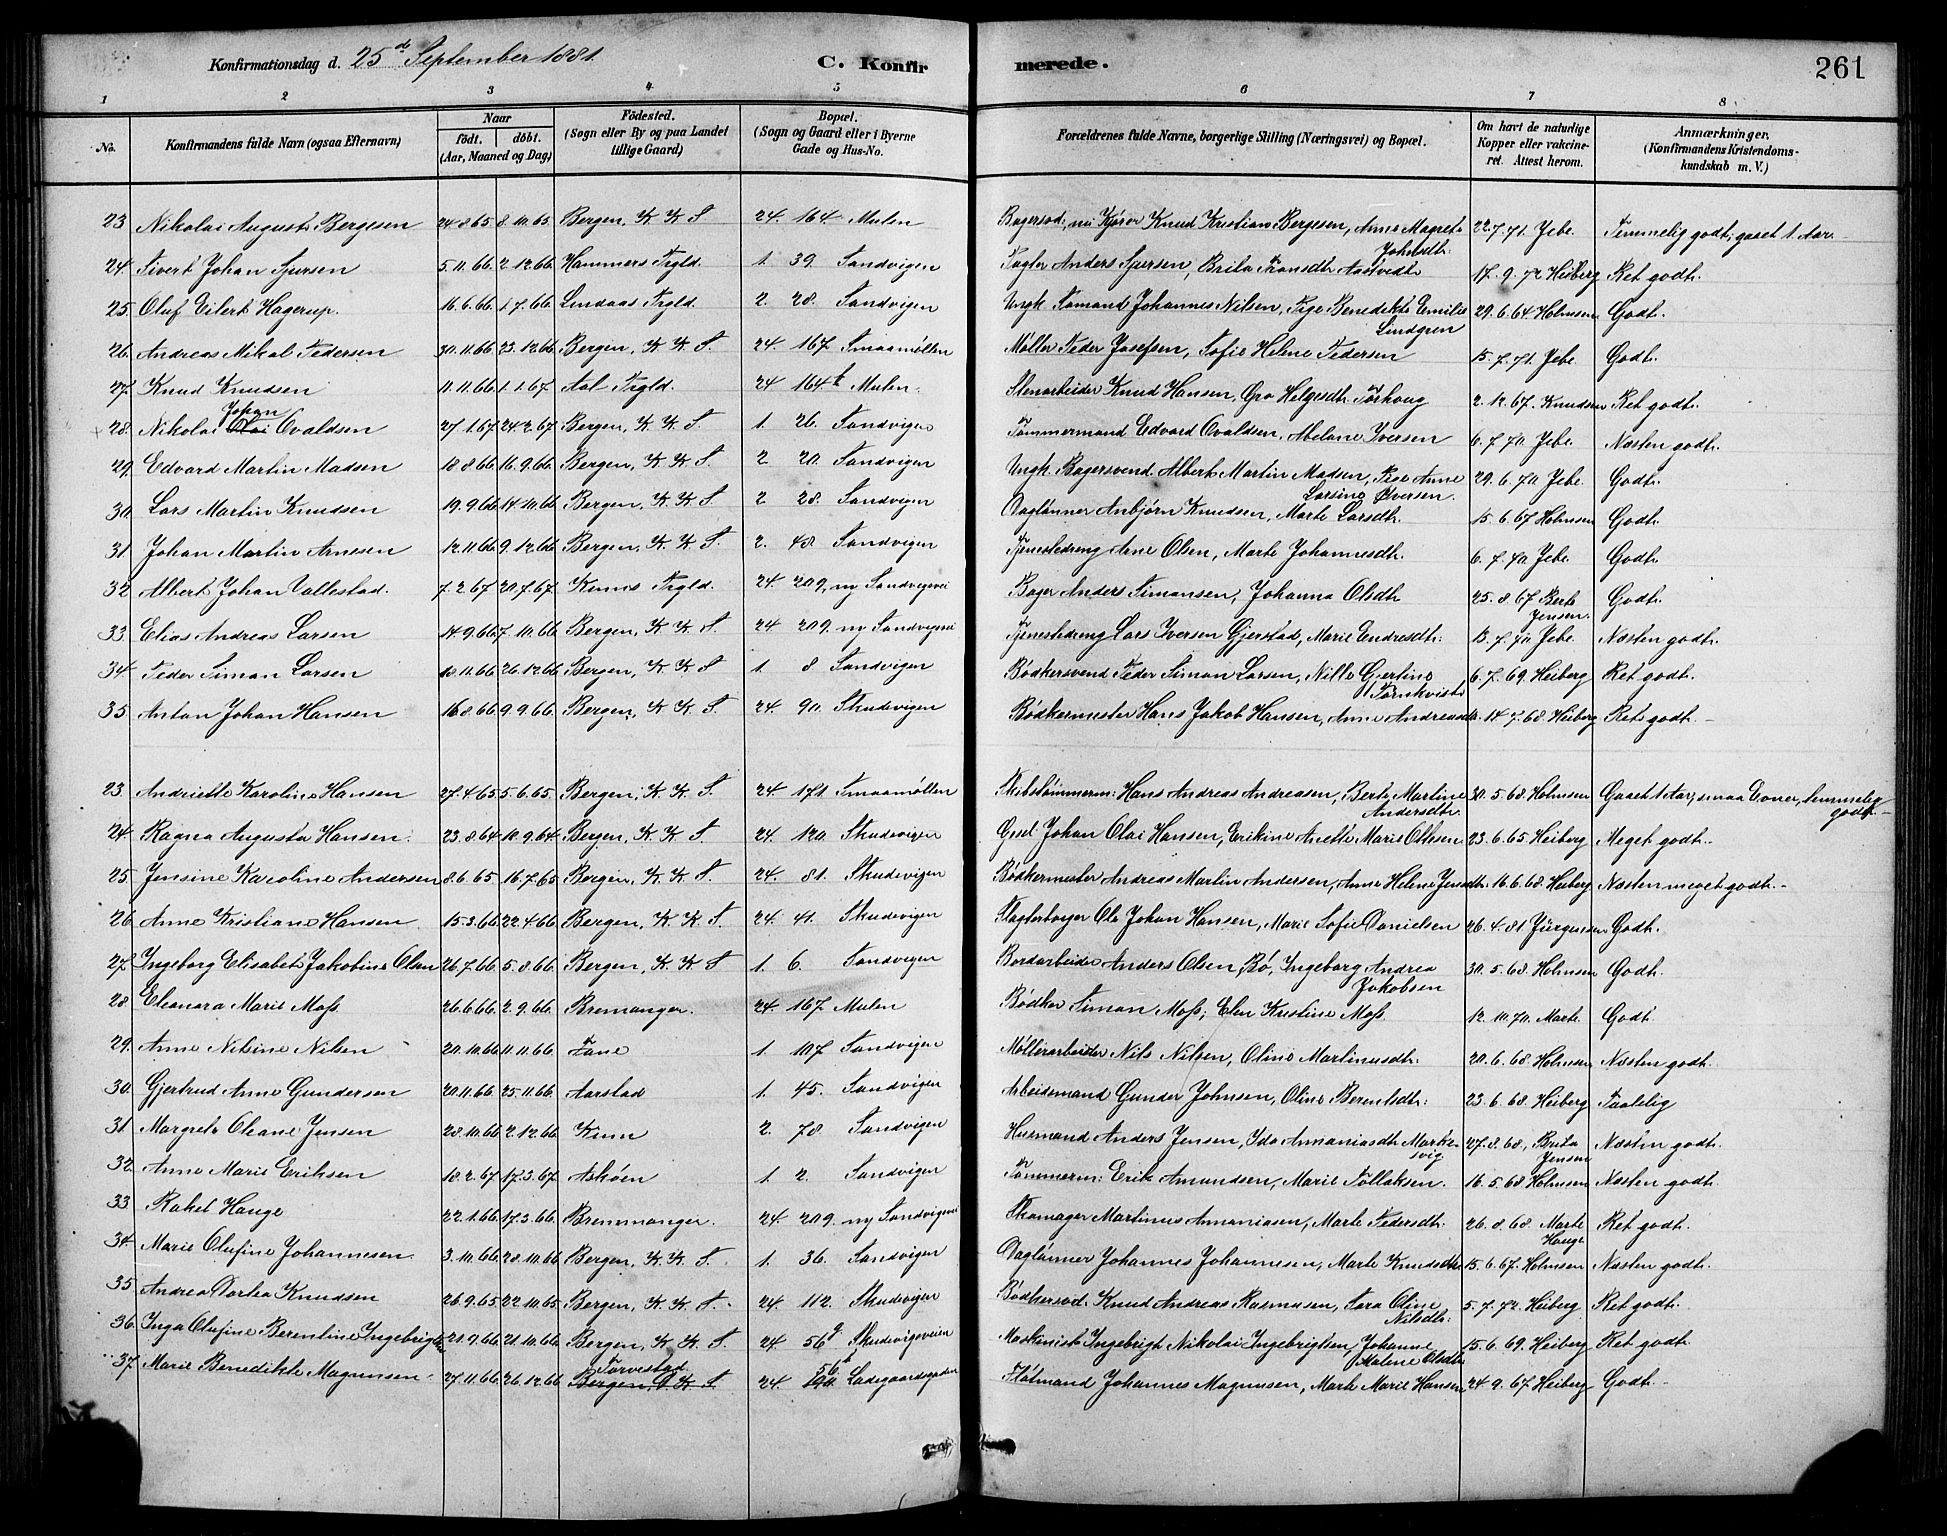 Konfirmationsdag d. 25de September 1881. C. Konfirmerede. 261
1 2 3 4 5 6 7 8
No. Konfirmandens fulde Navn (ogsaa Efternavn) Naar født. døbt. (Aar, Maaned og Dag) Fødested. (Sogn eller By og paa Landet tillige Gaard) Bopæl. (Sogn og Gaard eller i Byerne Gade og Hus-No. Forældrenes fulde Navne, borgerlige Stilling (Næringsvei) og Bopæl. Om havt de naturlige Kopper eller vakcineret. Attest herom. Anmærkninger. (Konfirmandens Kristendomskundskab m. V.)
23 Nikolai August Bergesen 24.8.65 8.10.65 Bergen, K. K. S 24. 164 Mulen Bagersvd. nu Kjører Knud Kristian Bergesen, Anne Magrete Jakobsdtr. 22.7.71. Jebe. Temmelig godt; gaaet 1 Aar.
24. Sivert Johan Sjursen 5.11.66. 2.12.66. Hammers Prgld. 1. 39. Sandvigen Fagler Anders Sjursen, Brita Fransdtr. Aastvedt 17.9.72 Heiberg Ret godt.
25. Oluf Eilert Hagerup. 16.6.66. 1.7.66. Lindaas Prgld. 2. 28. Sandvigen Ungk. Sømand Johannes Nilsen, Pige Benedikte Emilie Lindgren 29.6.64 Holmsen Godt.
26. Andreas Mikal Pedersen 30.11.66 23.12.66 Bergen, K. K. S. 24. 167 Smaamøllen Møller Peder Josefsen, Sofie Helene Pedersen 15.7.71. Jebe. Godt.
27. Knud Knudsen 11.11.66. 1.1.67. Aal Prgld. 24 164b Mulen. Stenarbeider Knud Hansen, Gro Helgesdtr. Torhaug 2.12.67. Knudsen Ret godt.
28. Nikolai Johan Ovaldsen 27.1.67 24.2.67 Bergen, K. K. S. 1. 26. Sandvigen Tømmermand Edvard Ovaldsen, Abelone Iversen 6.7.70. Jebe. Næsten godt.
29. Edvard Martin Madsen 18.8.66 16.9.66. Bergen, K. K. S. 2. 20. Sandvigen Ungk. Bagersvend Albert Martin Madsen, Pige Anne Larsine Iversen. 29.6.70 Jebe. Godt.
30. Lars Martin Knudsen 19.9.66 14.10.66 Bergen, K. K. S 2 28. Sandvigen Daglønner Anbjørn Knudsen, Marte Larsdtr. 15.6.67 Holmsen Godt.
31. Johan Martin Arnesen 12.11.66 9.12.66 Bergen, K. K. S. 2. 48. Sandvigen Tjenestedreng Arne Olsen, Marte Johannesdtr. 6.7.70. Jebe. Godt.
32. Albert Johan Vallestad. 7.2.67 20.7.67. Kinns Prgld. 24 209, ny Sandvigsvei Bager Anders Simonsen, Johanna Olsdtr. 25.8.67 Berte Jensen. Godt.
33. Elias Andreas Larsen 14.9.66 7.10.66 Bergen, K. K. S. 24 209. ny Sandvigsvei Tjenestedreng Lars Iversen Gjerstad, Marie Endresdtr. 15.7.70 Jebe. Næsten godt.
34. Peder Simon Larsen 18.11.66 26.12.66 Bergen, K. K. S 1. 8 Sandvigen Bødkersvend Peder Simon Larsen, Nille Gjertine Tørnkvist 6.7.69. Heiberg Ret godt.
35. Anton Johan Hansen 16.8.66 9.9.66. Bergen, K. K. S 24. 90. Skudevigen Bødkermester Hans Jakob Hansen, Anne Andreasdtr. 14.7.68 Heiberg Ret godt.
23. Andriette Karoline Hansen 27.4.65 5.6.65. Bergen, K. K. S. 24. 171. Smaamøllen Skibstømmerm: Hans Andreas Andreasen, Berte Martine Andersdtr. 30.5.68 Holmsen Gaaet 1 Aar, smaa Evner, temmelig godt.
24. Ragna Augusta Hansen. 23.8.64 18.9.64. Bergen, K. K. S. 24. 120. Skudevigen Gsel Johan Olai Hansen, Erikine Anette Marie Olsen 23.6.65 Heiberg Meget godt.
25. Jensine Karoline Andersen 8.6.65. 16.7.65 Bergen, K. K. S. 24. 81. Skudevigen Bødkermester Andreas Martin Andersen, Anne Helene Jensdtr. 16.6.68 Heiberg Næsten meget godt.
26. Anne Kristiane Hansen. 15.3.66 22.4.66 Bergen, K. K. S 24. 41. Skudevigen Slagterborger Ole Johan Hansen, Marie Sofie Danielsen 26.4.81 Jürgensen Godt.
27. Ingeborg Elisabet Jakobine Olsen 26.7.66 5.8.66 Bergen, K. K. S 1. 6. Sandvigen Bordarbeider Anders Olsen Bø, Ingeborg Andrea Jakobsen 30.5.68. Holmsen Godt.
28 Eleonora Marie Moss. 26.6.66 2.9.66. Bremanger. 24. 167 Mulen Bødker Simon Moss, Elen Kristine Moss 12.10.70. Marte. Godt.
29. Anne Nilsine Nilsen 20.10.66 11.11.66. Fane 1. 107 Sandvigen Møllerarbeider Nils Nilsen, Oline Martinusdtr. 20.6.68 Holmsen Næsten godt.
30. Gjertrud Anne Gundersen 20.11.66 25.11.66. Aarstad 1. 45. Sandvigen Arbeidsmand Gunder Johnsen, Oline Berentsdtr. 23.6.68. Heiberg Taalelig
31. Margrete Oleane Jensen 28.10.66 2.12.66. Kinn 2. 78. Sandvigen Husmand Anders Jensen, Ida Ananiasdtr. Markesvig 27.8.68, Brita Jensen Næsten godt.
32. Anne Marie Eriksen 18.2.67 17.3.67. Askøen 1. 2. Sandvigen Tømmerm: Erik Amundsen, Marie Tollaksen. 16.5.68 Holmsen Næsten godt.
33. Rakel Hauge 22.1.66 17.3.66. Bremmanger. 24 209. ny Sandvigsvei Skomager Martinus Annaniasen, Marte Pedersdtr. 26.8.68. Marte Hauge Ret godt.
34. Marie Olufine Johannesen 3.10.66 28.10.66 Bergen, K. K. S. 1. 36. Sandvigen Daglønner Johannes Johannesen, Marte Knudsdtr. 15.6.67. Holmsen Næsten godt.
35. Andrea Dortea Knudsen 26.9.65 22.10.65 Bergen, K. K. S. 24 112. Skudevigen Bødkersvd. Knud Andreas Rasmussen, Sara Oline Nilsdtr. 5.7.72. Heiberg Ret godt.
36. Inga Olufine Berentine Ingebrigtsen 21.9.66 21.10.66. Bergen, K. K. S 24 56g Skudevigsveien Maskinist Ingebrigt Nikolai Ingebrigtsen, Johanne Malene Olsdtr. 15.6.69. Heiberg Ret godt.
37. Marie Benedikte Magnussen 27.11.66 26.12.66 Torvestad Bergen, K. K. S 24 56a Ladegaardsgaden Flotmand Johannes Magnussen, Marte Marie Hansen 24.9.67 Heiberg Godt.